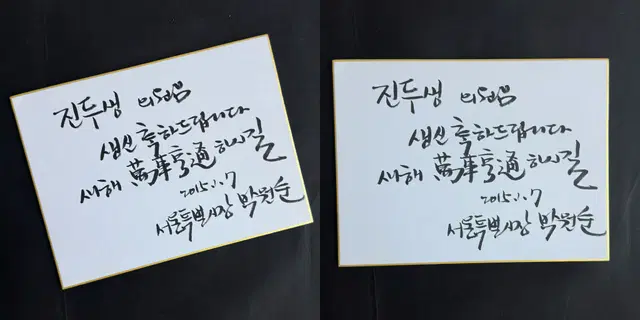 진두생 의원님
생신 축하드립니다
새해 萬事亨通 하시길
2015.1.7
서울특별시장 박원순
진두생 의원님
생신 축하드립니다
새해 萬事亨通 하시길
2015.1.7
서울특별시장 박원순